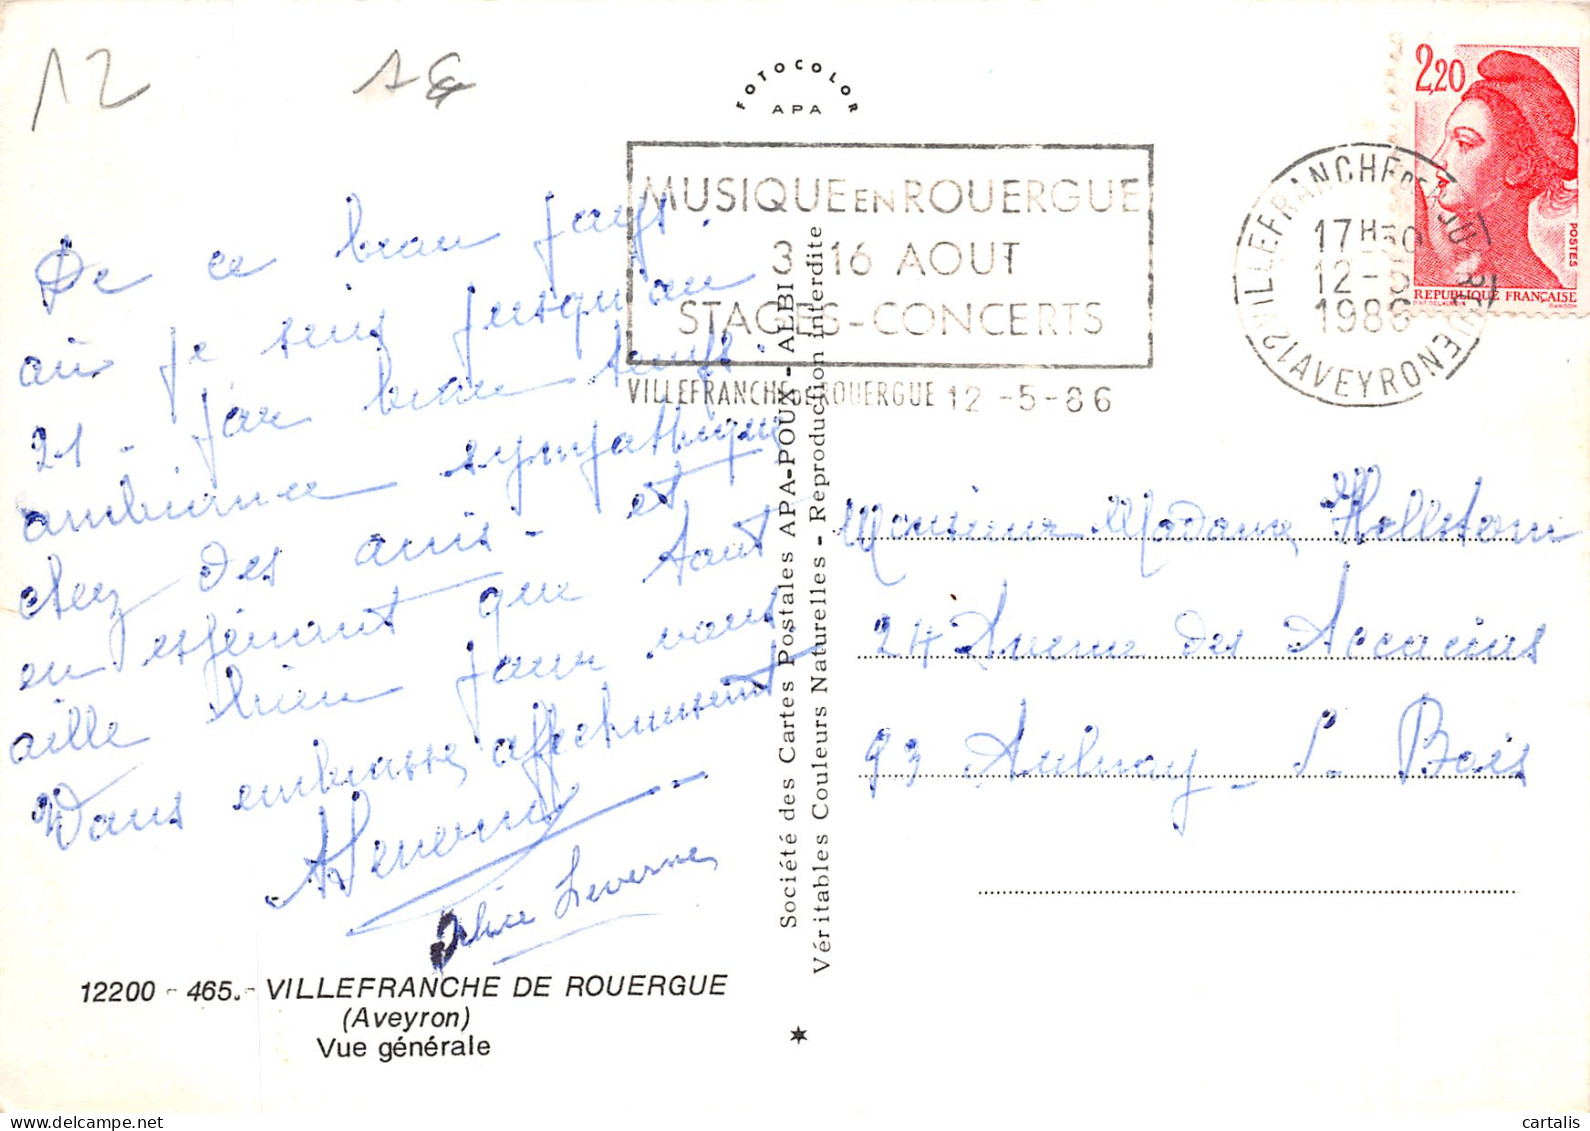 12
FOTOCOLOR
APA
2,20
POSTES
REPUBLIQUE FRANÇAISE
MUSIQUE EN ROUERGUE
3 16 AOUT
STAGES-CONCERTS
VILLEFRANCHE DE ROUERGUE 12 -5-86
VILLEFRANCHE DE ROUERGUE
17H30
12-5
1986
12 AVEYRON
De ce beau pays.
où je suis jusqu'au
21 - par beau temps.
ambiance sympathique
chez des amis - et
en espérant que tout
aille bien pour vous
Vous embrasse, affectueusement
Alice Leverne
Monsieur Madame Hellstom
24 Avenue des Accacias
93 Aulnay - S. Bois
Société des Cartes Postales APA-POUX - ALBI
Véritables Couleurs Naturelles - Reproduction interdite
12200 - 465. - VILLEFRANCHE DE ROUERGUE
(Aveyron)
Vue générale
cartalis